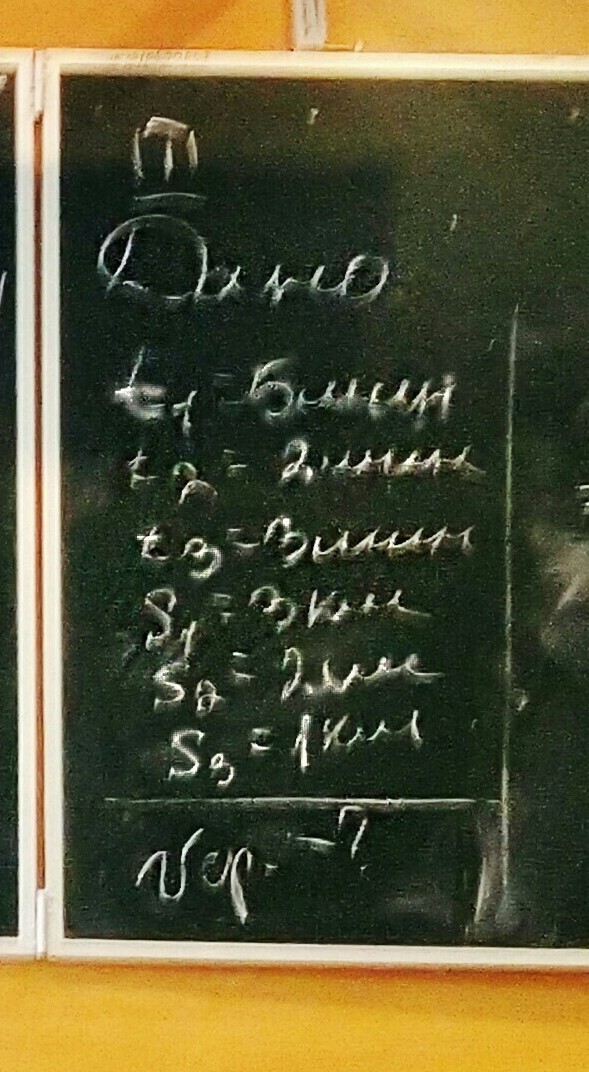 III
Дано
t1 = 5 мин
t2 = 2 мин
t3 = 3 мин
S1 = 3 км
S2 = 2 км
S3 = 1 км
Vср. - ?